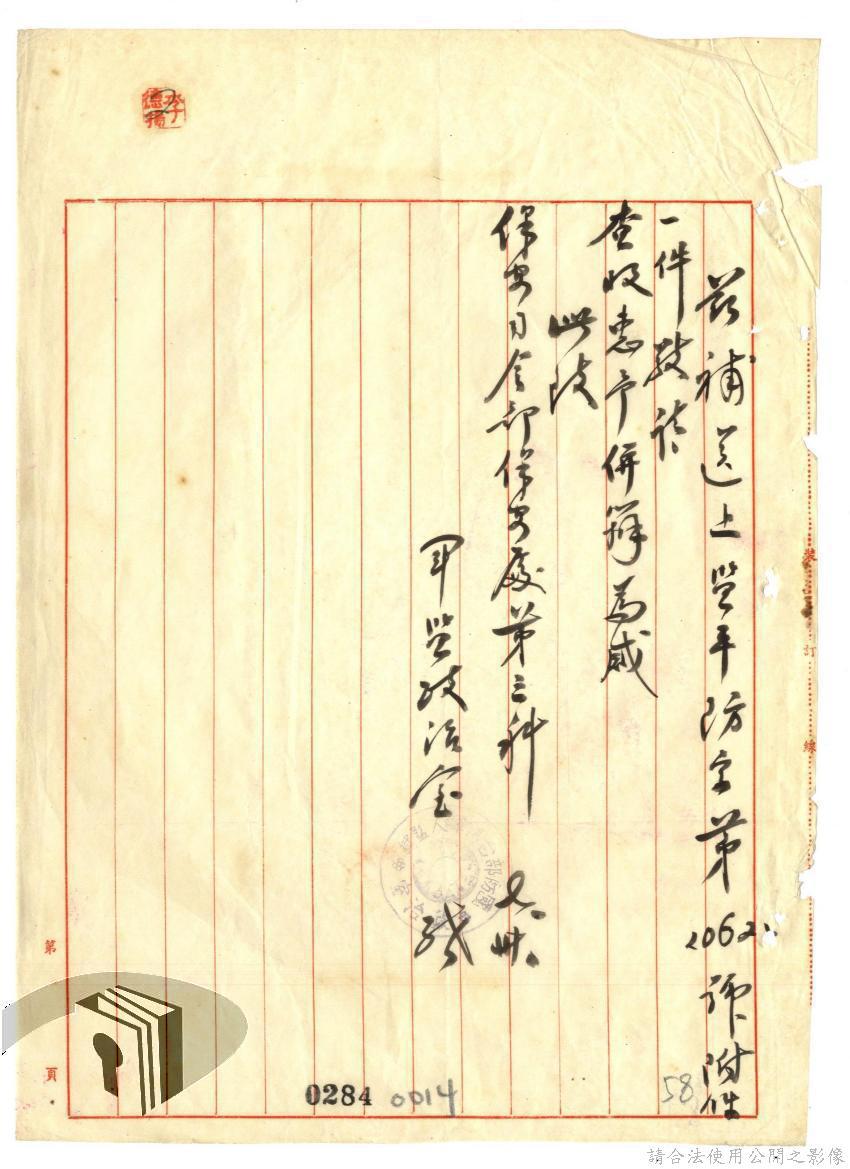 茲補送上監平防字第1062號附件
一件敬請
查收惠予併辦為感
此致
保安司令部保安處第三科
軍監政治室
七、卅、
裝
訂
線
第
頁
0284
0014
58
請合法使用公開之影像